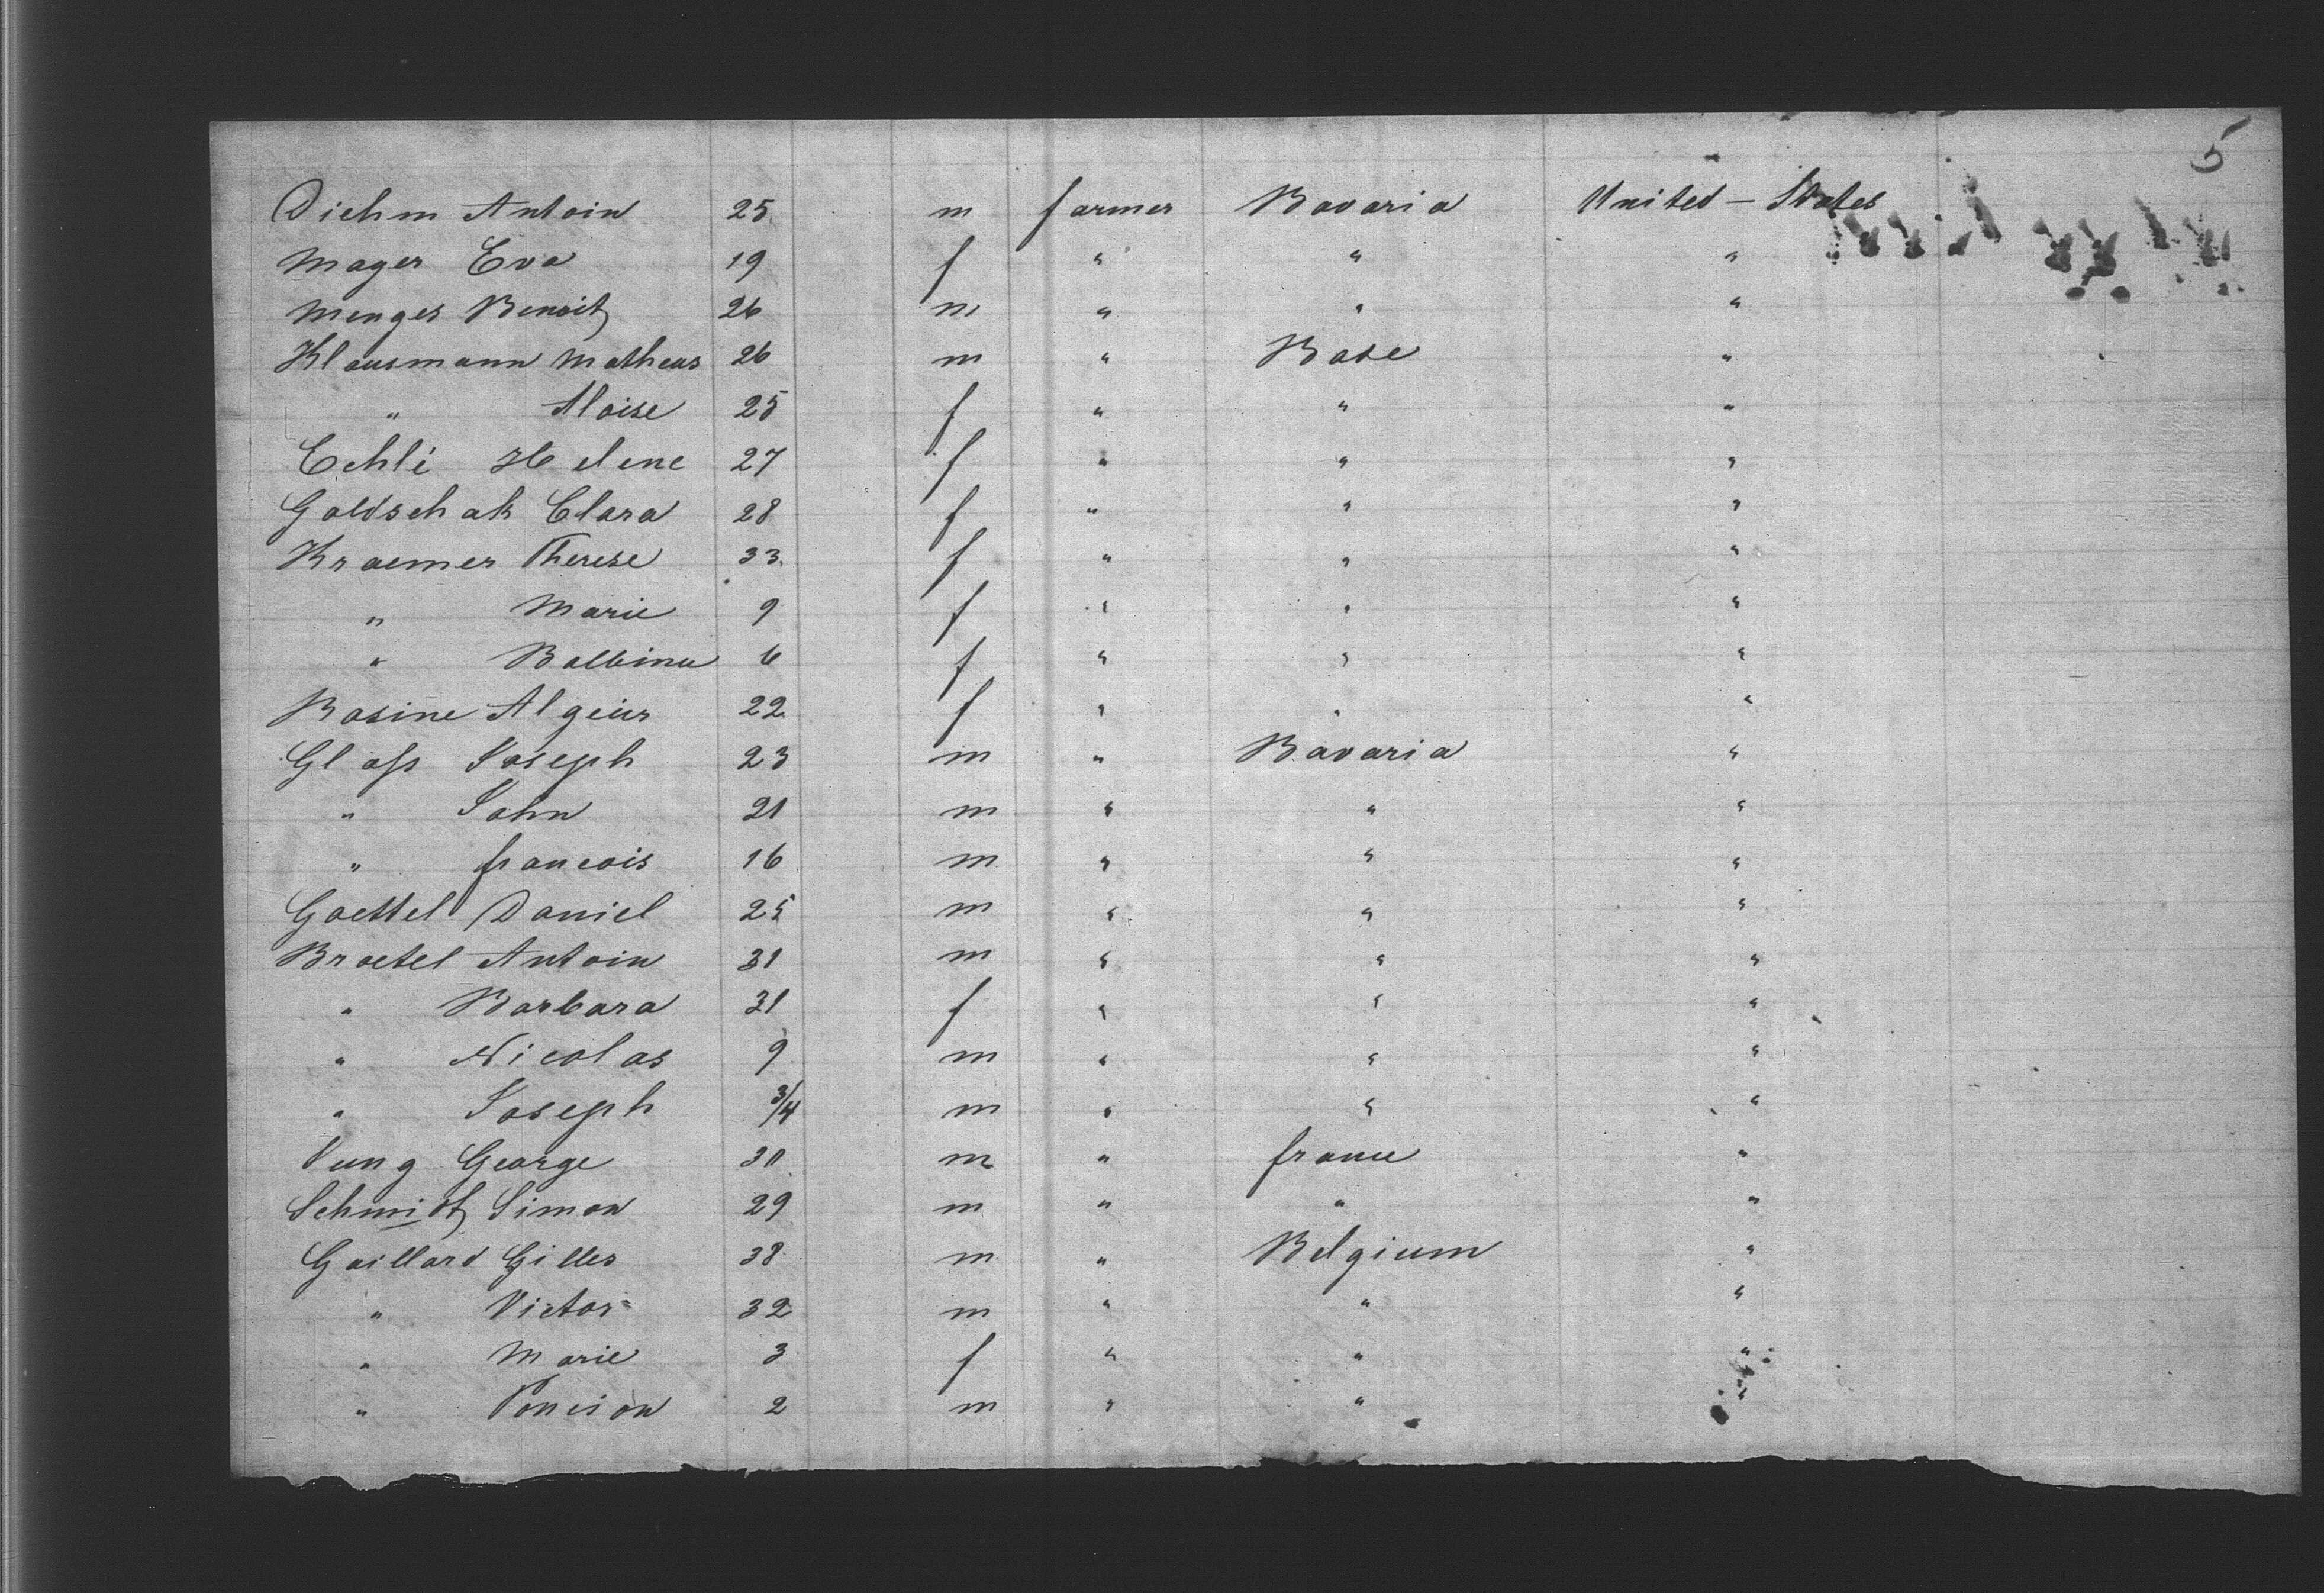 5
Diehm Antoin 25 m farmer Bavaria United - States
Mager Eva 19 f " " "
Menges Benoit 26 m " " "
Klausmann Matheus 26 m " Bade "
" Aloise 25 f " " "
Echle Helene 27 f " " "
Goldschak Clara 28 f " " "
Kraemer Therese 33 f " " "
" Marie 9 f " " "
" Balbina 6 f " " "
Rosine Algeier 22 f " " "
Glass Joseph 23 m " Bavaria "
" John 21 m " " "
" francois 16 m " " "
Goettel Daniel 25 m " " "
Braetel Antoin 31 m " " "
" Barbara 31 f " " "
" Nicolas 9 m " " "
" Joseph 3/4 m " " "
Jung George 30 m " france "
Schmidt Simon 29 m " " "
Gaillard Gilles 38 m " Belgium "
" Victor 32 m " " "
" Marie 3 f " " "
" 2 m " " "